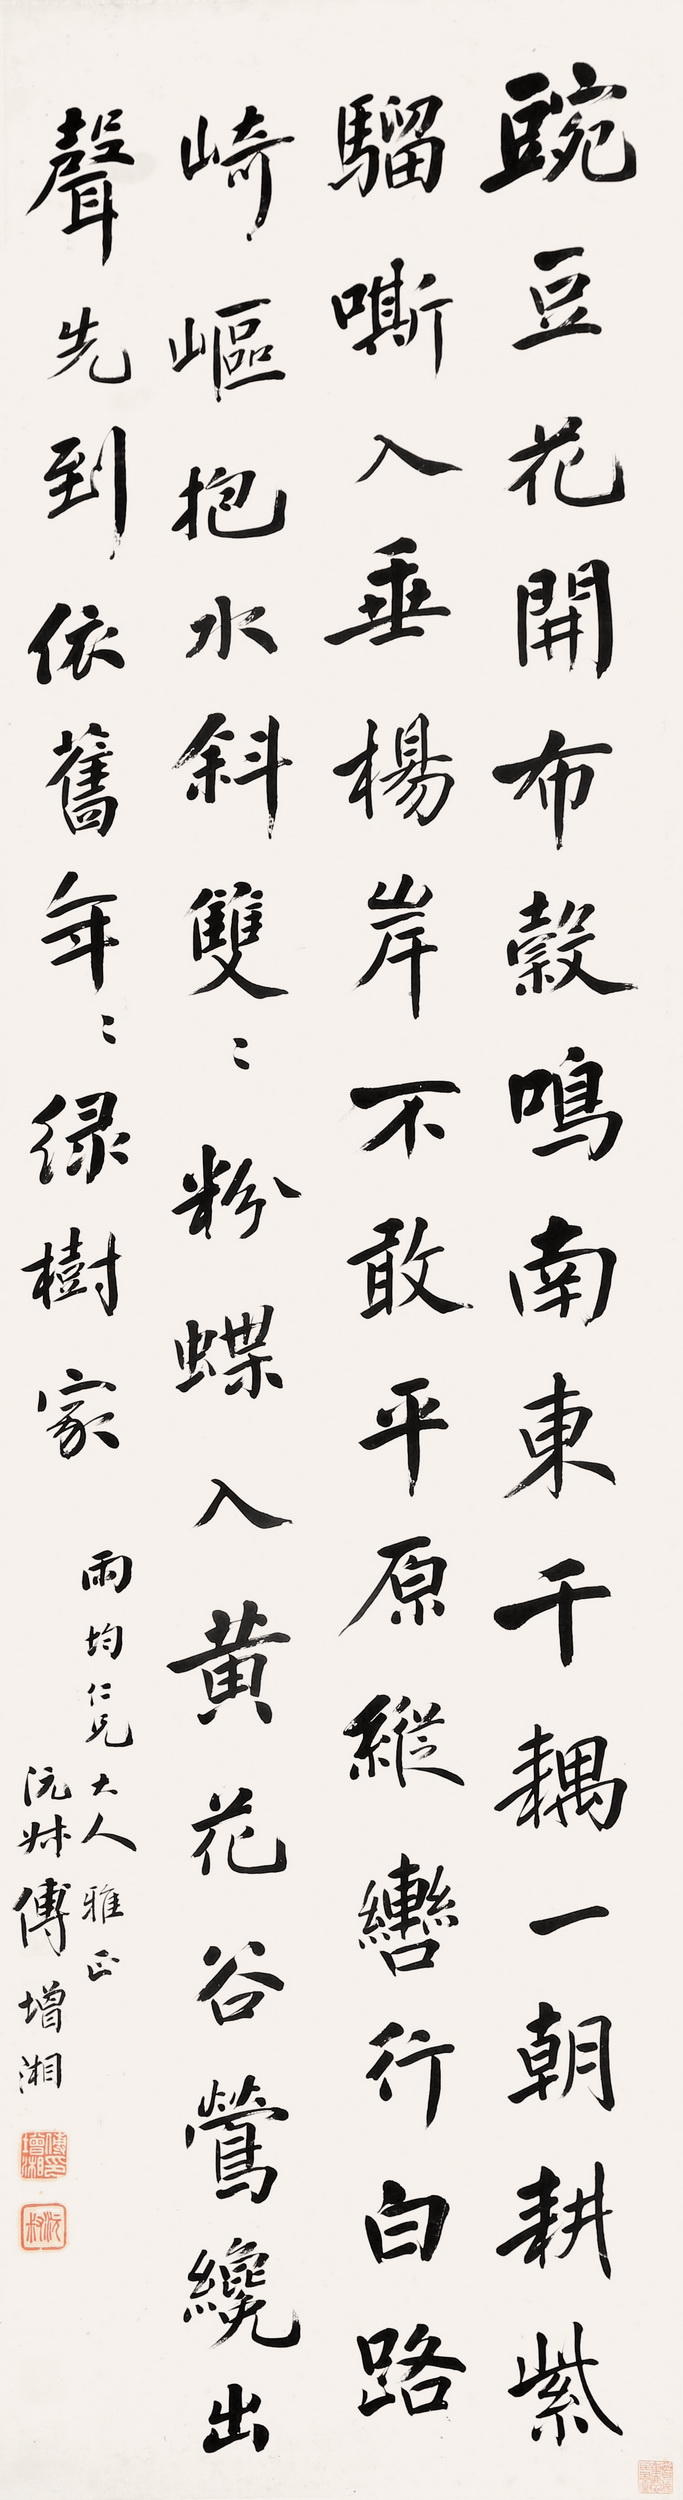 豌豆花開布穀鳴南東千耦一朝耕紫
騮嘶入垂楊岸不敢平原縱轡行白路
崎嶇抱水斜雙〻粉蝶入黃花谷鶯纔出
聲先到依舊年〻綠樹家
雨均仁兄大人雅正
沅叔傅增湘
傅增湘印
沅叔